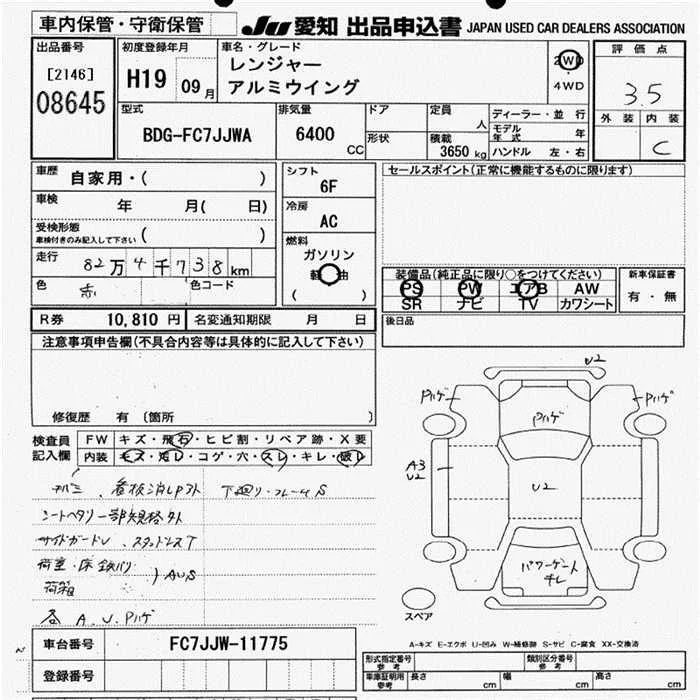 車内保管・守衛保管
JU 愛知 出品申込書 JAPAN USED CAR DEALERS ASSOCIATION
出品番号
[2146]
08645
初度登録年月
H19 09月
車名・グレード
レンジャー
アルミウイング
2WD
4WD
評価点
3.5
外装 内装
C
型式
BDG-FC7JJWA
排気量
6400 CC
ドア
形状
定員
人
積載
3650 kg
ディーラー・並行
モデル年式 年
ハンドル 左・右
車歴
自家用・( )
車検
年 月( 日)
受検形態
車検付きのみ記入して下さい ( )
走行
82万4千738km
色 赤 色コード
シフト
6F
冷房
AC
燃料
ガソリン
軽油
( )
セールスポイント(正常に機能するものに限ります)
装備品(純正品に限り○をつけてください)
PS PW エアB AW
SR ナビ TV カワシート
新車保証書
有・無
R券 10,810円 名変通知期限 月 日
後日品
注意事項申告欄(不具合内容等は具体的に記入して下さい)
修復歴 有 〔箇所 〕
検査員記入欄
FW キズ・飛石・ヒビ割・リペア跡・X要
内装 キズ・汚レ・コゲ・穴・スレ・キレ・破レ
アルミ、看板消しP外 下廻り・フレームS
シートヘタリ一部規格外
サイドガードU、スタンドレスT
荷室・床鉄バリ
荷箱
)AUS
各 A.U.Pハゲ
U2
Pハゲ
Pハゲ
Pハゲ
A3
U2
U2
パワーゲート
キレ
スペア
A-キズ E-エクボ U-凹み W-補修跡 S-サビ C-腐食 XX-交換済
車台番号 FC7JJW-11775
登録番号
形式指定番号 参考
類別区分番号 参考
車庫証明用 参考 長さ cm 幅 cm 高さ cm